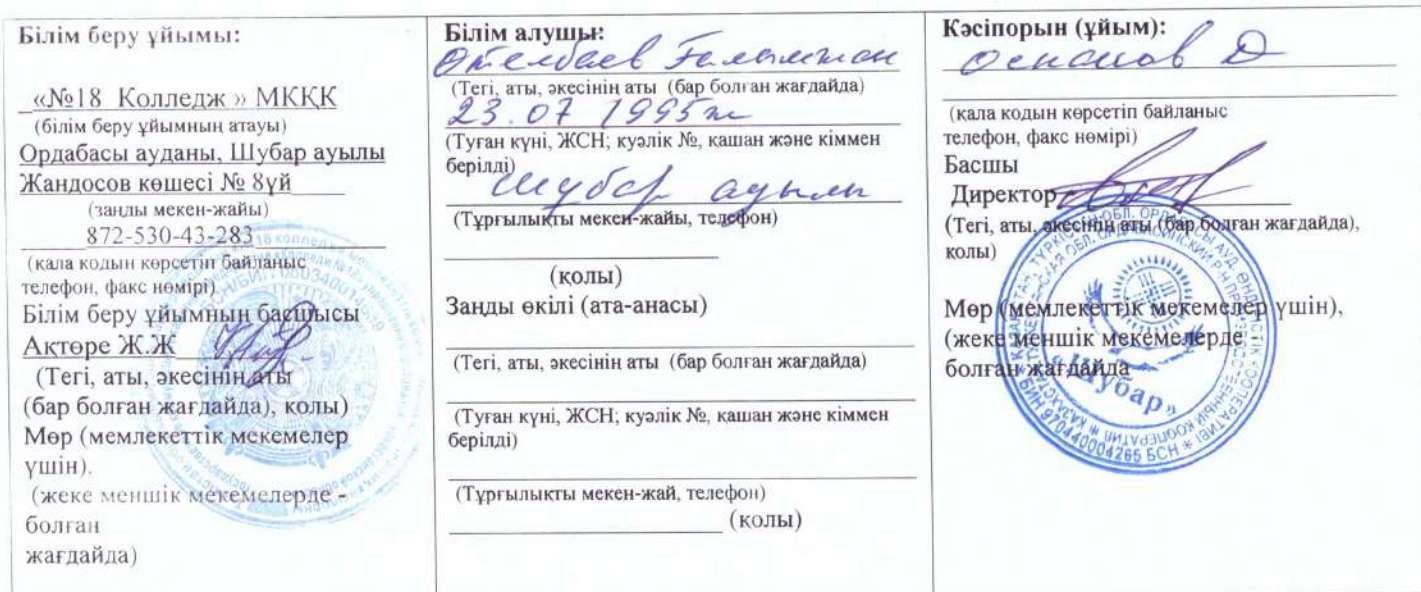 Білім беру ұйымы:
«№18 Колледж » МКҚК
(білім беру ұйымның атауы)
Ордабасы ауданы, Шубар ауылы
Жандосов көшесі № 8үй
(заңды мекен-жайы)
872-530-43-283
(қала кодын көрсетіп байланыс
телефон, факс нөмірі)
Білім беру ұйымның басшысы
Ақтөре Ж.Ж
(Тегі, аты, әкесінің аты
(бар болған жағдайда), қолы)
Мөр (мемлекеттік мекемелер
үшін),
(жеке меншік мекемелерде -
болған
жағдайда)
Білім алушы:
Өтелбаев Ғалымжан
(Тегі, аты, әкесінің аты (бар болған жағдайда)
23.07 1995ж
(Туған күні, ЖСН; куәлік №, қашан және кіммен
берілді)
Шубар ауылы
(Тұрғылықты мекен-жайы, телефон)
(қолы)
Заңды өкілі (ата-анасы)
(Тегі, аты, әкесінің аты (бар болған жағдайда)
(Туған күні, ЖСН; куәлік №, қашан және кіммен
берілді)
(Тұрғылықты мекен-жай, телефон)
(қолы)
Кәсіпорын (ұйым):
Оспанов Д
(қала кодын көрсетіп байланыс
телефон, факс нөмірі)
Басшы
Директор
(Тегі, аты, әкесінің аты (бар болған жағдайда),
қолы)
Мөр (мемлекеттік мекемелер үшін),
(жеке меншік мекемелерде -
болған жағдайда
«Шубар»
БИН 970440004265 БСН